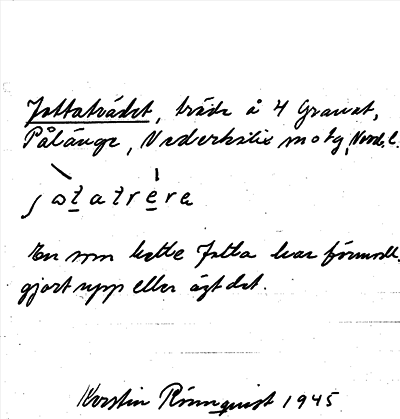 Jottaträdet, träda å 4 Granat,
Pålänge, Nederkalix motg, Nord. l.
jotatrera
En som hette Jotta har förmodl.
gjort upp eller ägt det.
Kerstin Rönnquist 1945